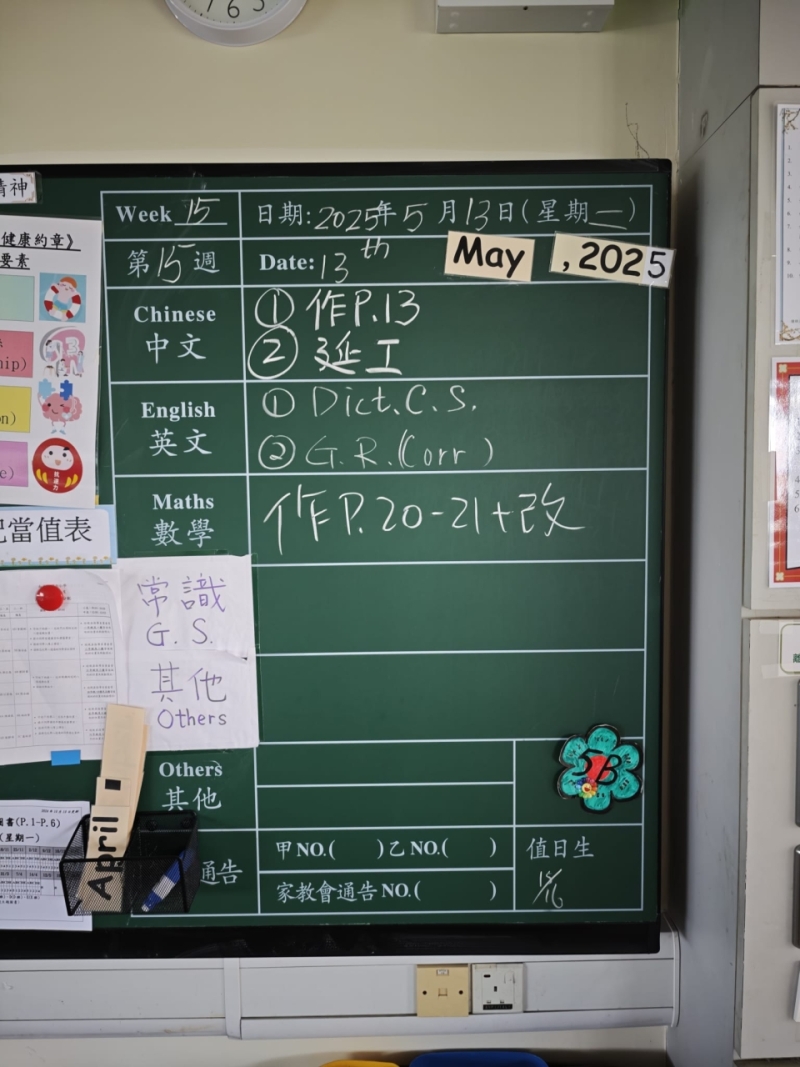 精神
Week 15
日期: 2025年5月13日(星期二)
第15週
Date: 13th
May
, 2025
Chinese
中文
① 作P.13
② 延工
English
英文
① Dict.C.S.
② G.R.(Corr)
Maths
數學
作P.20-21+改
常識
G.S.
其他
Others
Others
其他
5B
通告
甲NO.( )乙NO.( )
家教會通告NO.( )
值日生
15/16
健康約章》
要素
hip)
on)
e)
當值表
April
圖書(P.1-P.6)
(星期一)